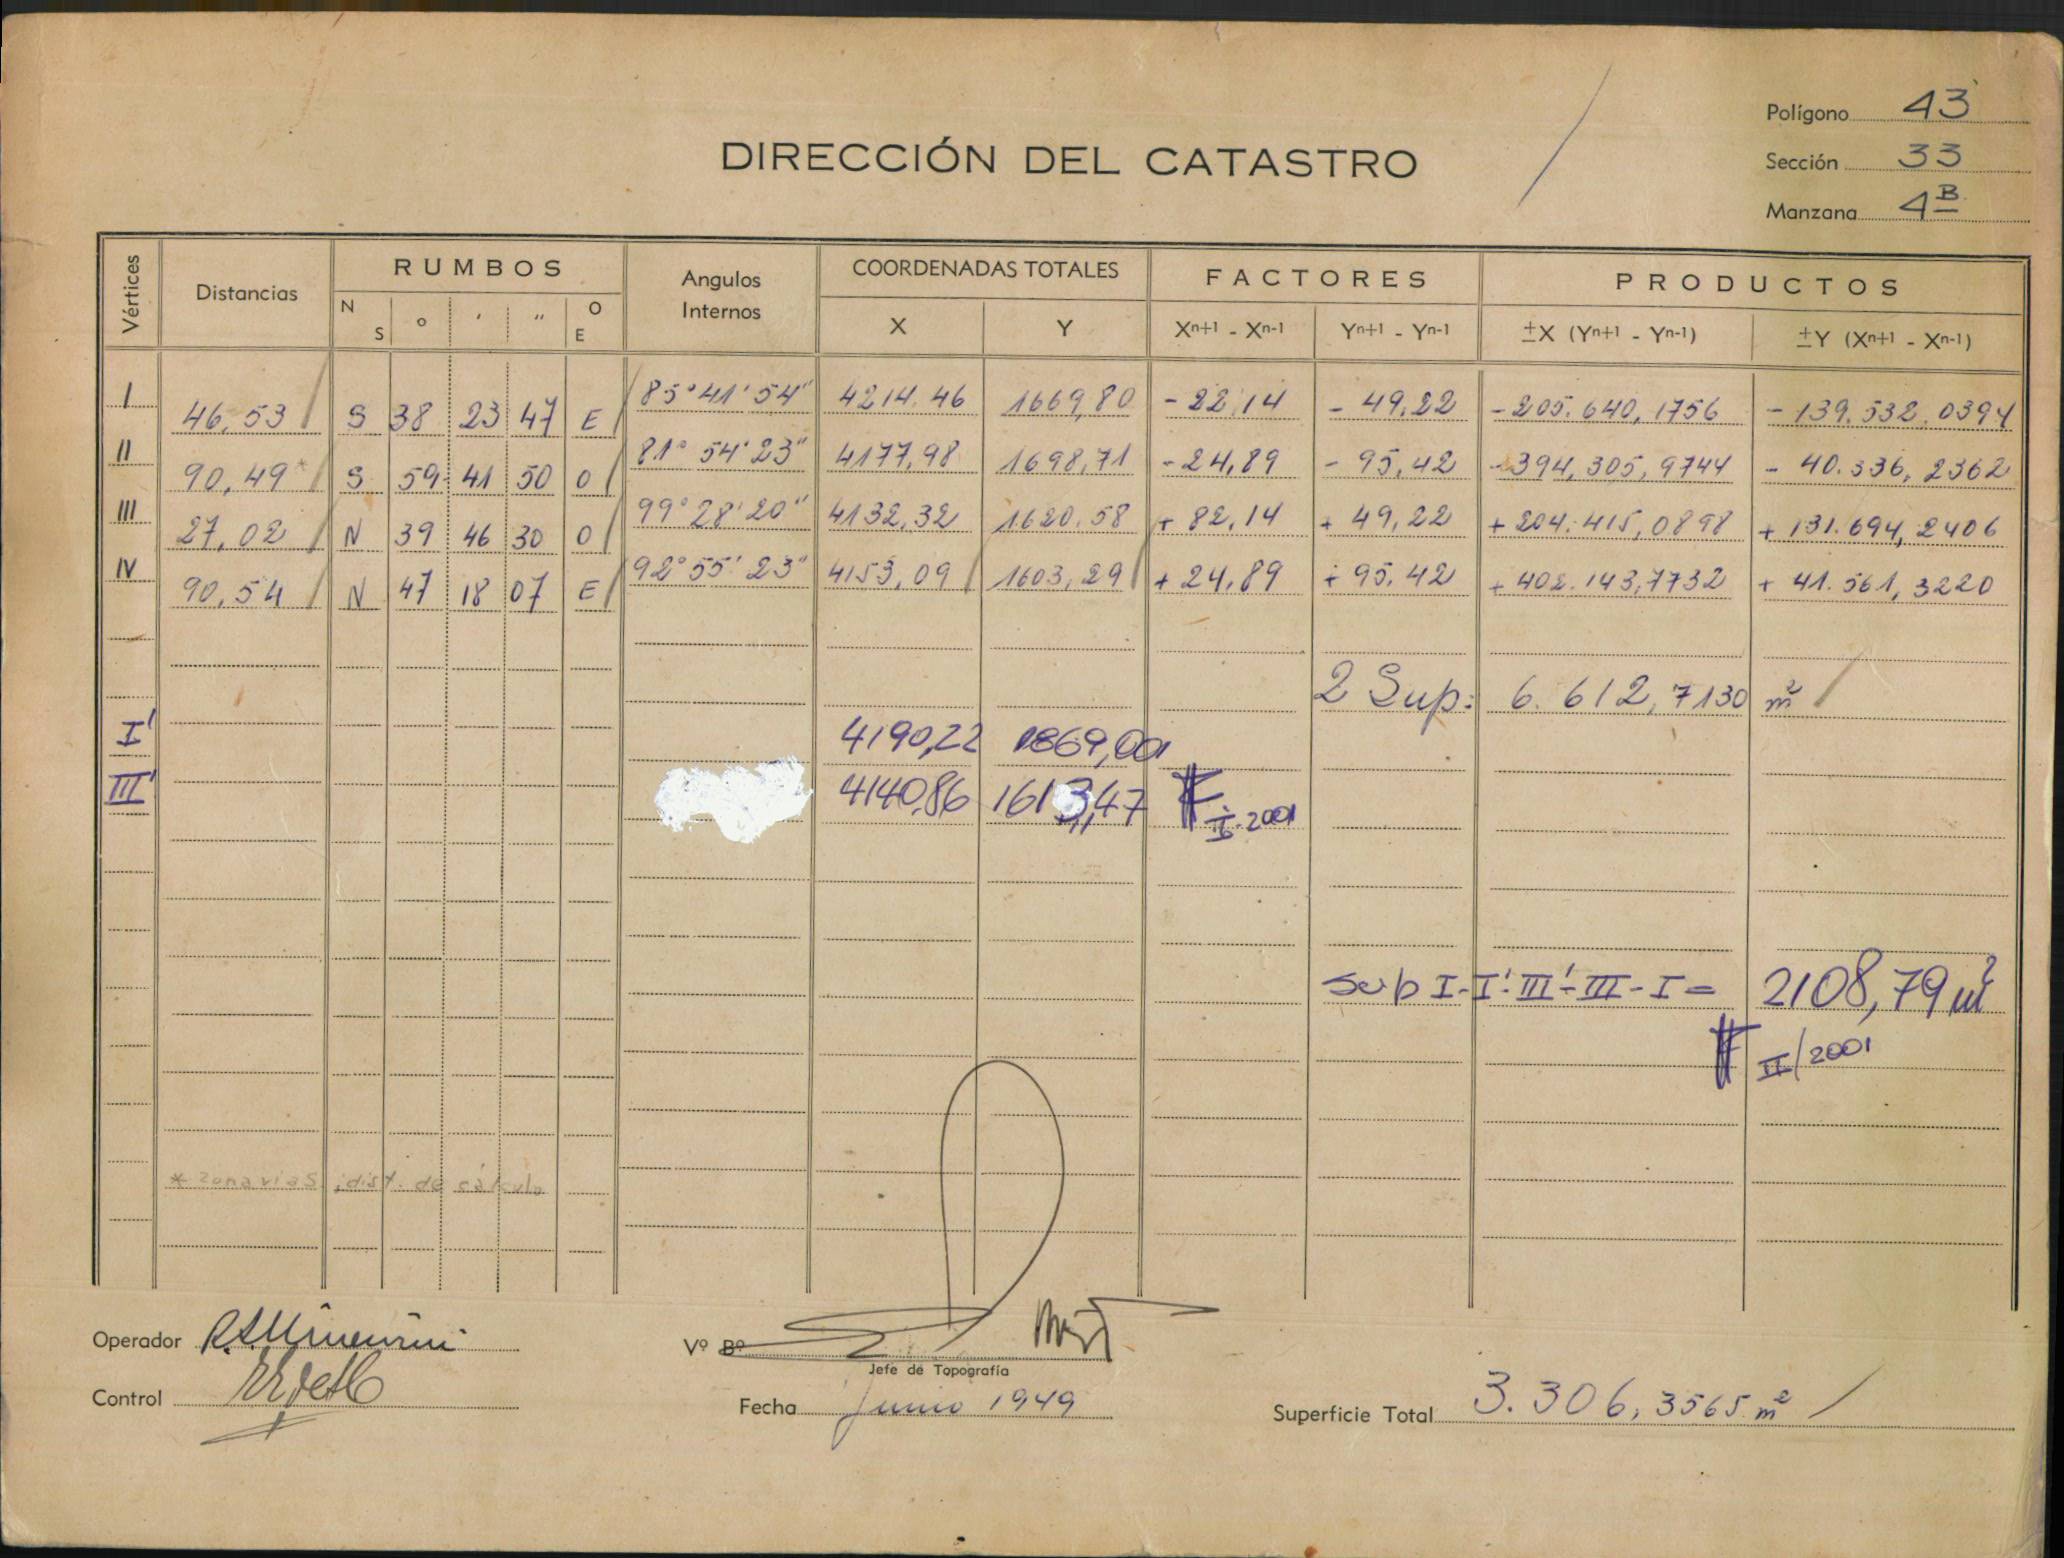 Polígono 43
DIRECCIÓN DEL CATASTRO
Sección 33
Manzana 4B
Vértices Distancias RUMBOS Angulos Internos COORDENADAS TOTALES FACTORES PRODUCTOS
N S ° ' " O E X Y Xn+1 - Xn-1 Yn+1 - Yn-1 ±X (Yn+1 - Yn-1) ±Y (Xn+1 - Xn-1)
I 85°41'54" 4214.46 1669,80 - 22,14 - 49,22 - 205.640,1756 - 139.532.0394
46,53 S 38 23 47 E
II 81° 54' 23" 4177,98 1698,71 - 24,89 - 95,42 - 394,305,9744 - 40.336,2362
90,49* S 59 41 50 O
III 99°28'20" 4132,32 1620.58 + 82,14 + 49,22 + 204.415,0898 + 131.694,2406
27,02 N 39 46 30 O
IV 92°55'23" 4153,09 1603,29 + 24,89 + 95,42 + 402.143,7732 + 41.561,3220
90,54 N 47 18 07 E
2 Sup: 6.612,7130 m²
I' 4190,22
III' 4140,86 1613,47
2001
sup I-I'-III'-III-I = 2108,79 m²
II/2001
* zona vias; dist. de cálculo
Operador
Vº Bº
Jefe de Topografía
Control
Fecha Junio 1949
Superficie Total 3.306,3565 m²